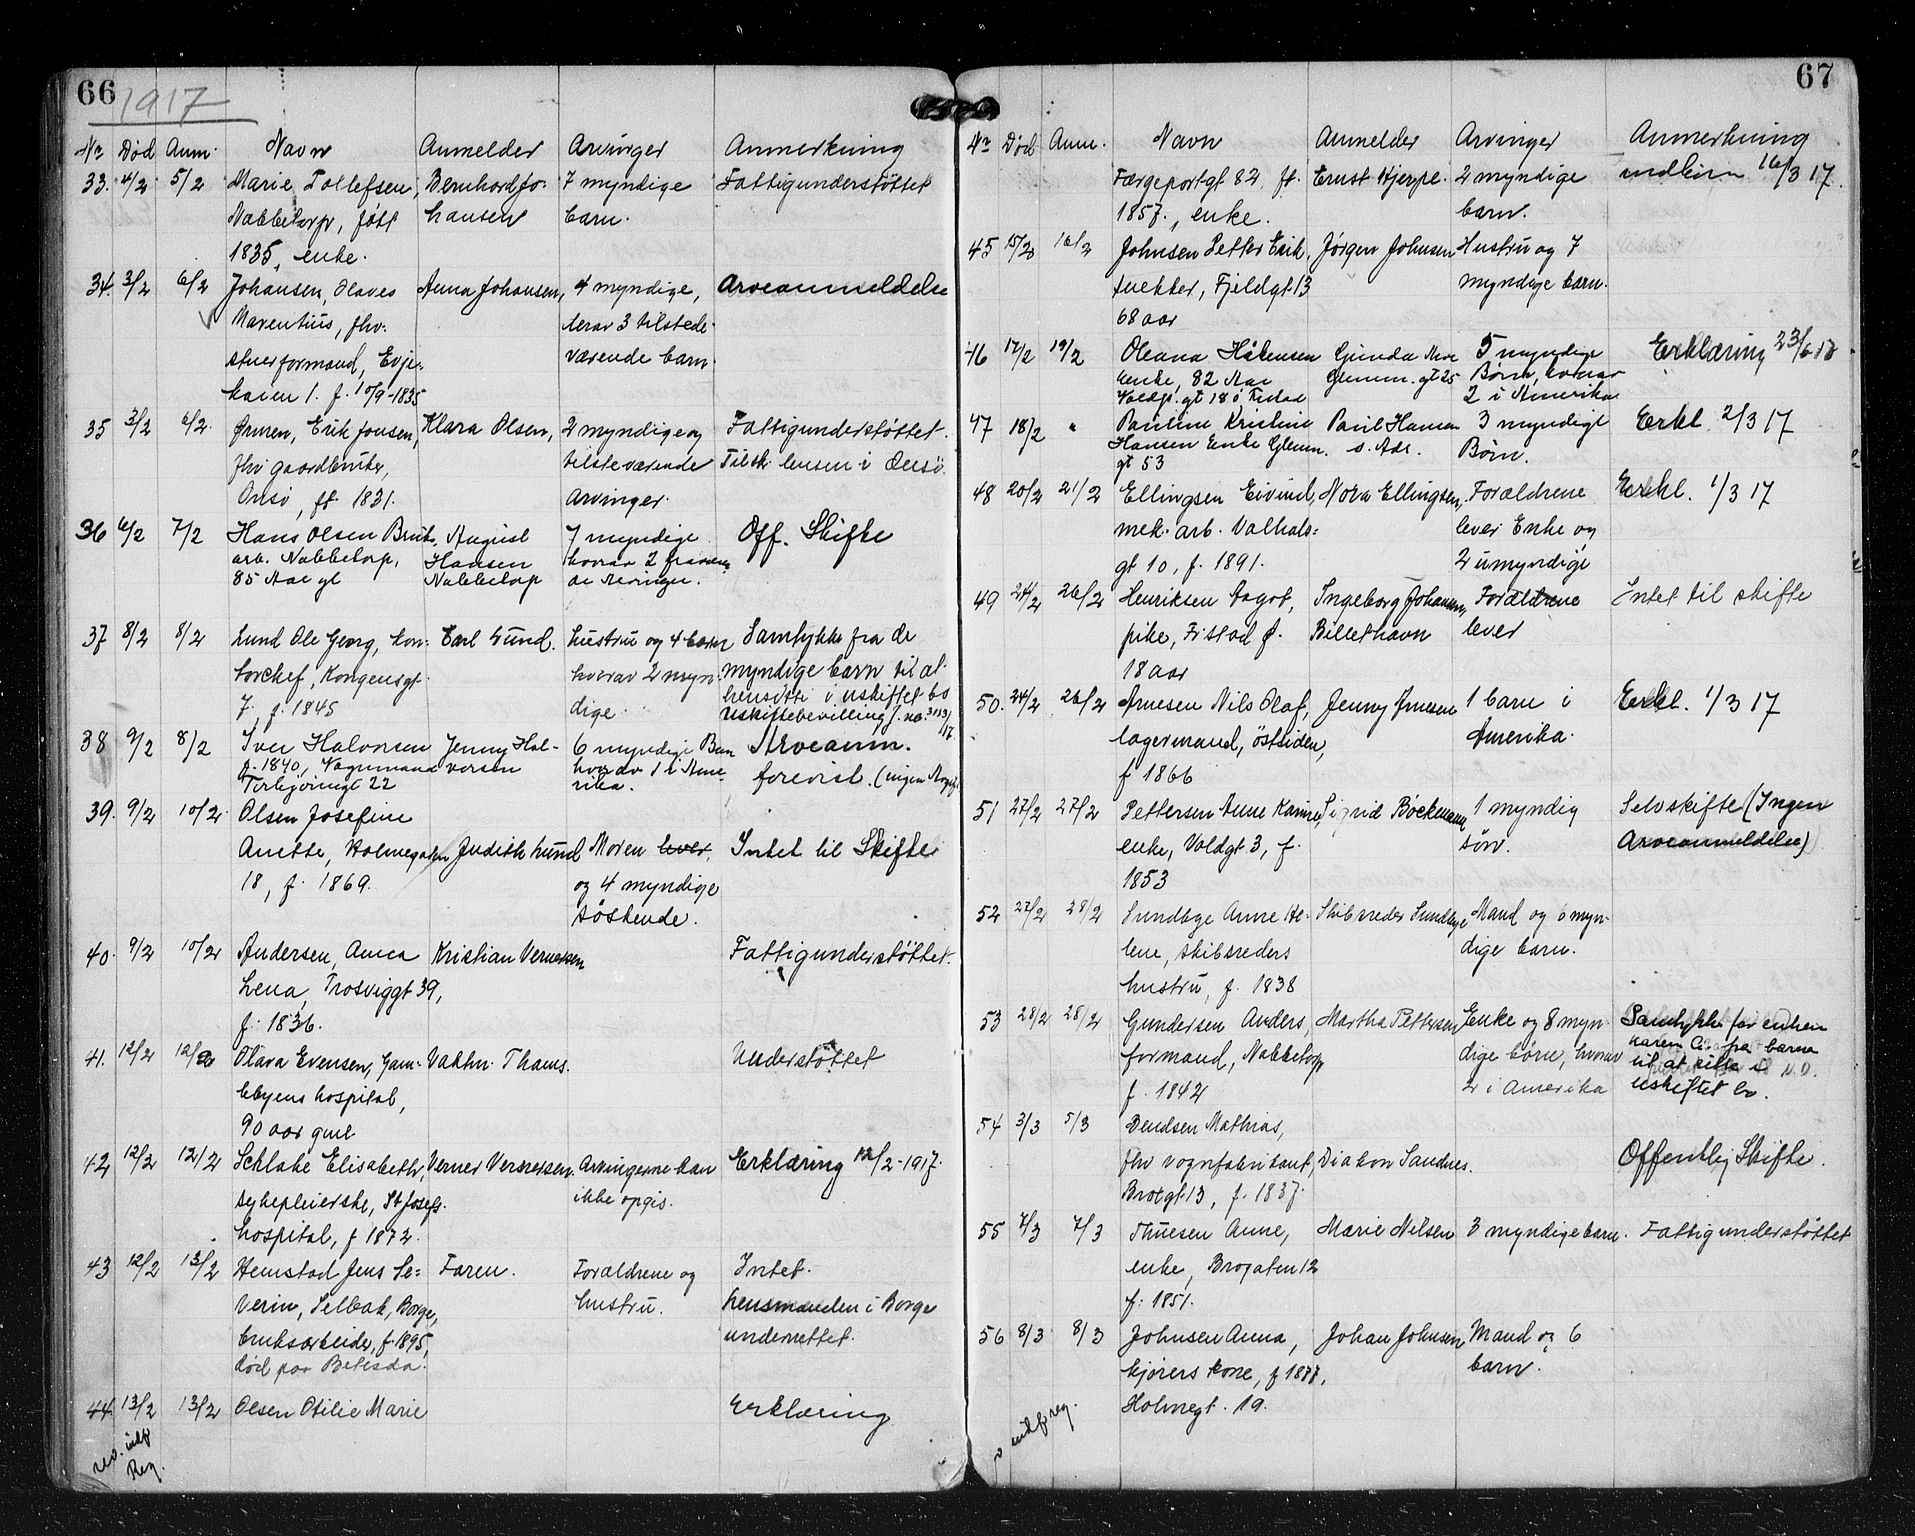 66
1917
Nr Død Anm. Navn Anmelder Arvinger Anmerkning
33. 4/2 5/2 Marie Tollefsen, Bernhard Jo- 7 myndige Fattigunderstøttet
Nabbetorp, født hansen barn.
1835, enke.
34. 3/2 6/2 Johansen, Olaves Anna Johansen, 4 myndige, Arveanmeldelse
Marentius, fhv. derav 3 tilstede-
stuerformand, Evje- værende barn.
kaien 1. f. 10/9-1835
35 3/2 6/2. Ørmen, Erik Jonsen, Klara Olsen, 2 myndige og Fattigunderstøttet.
fhv gaardbruker, tilsteværende Tilsk. lensm i Onsø.
Onsø, ff. 1831. Arvinger.
36 6/2 7/2 Hans Olsen Bruks August 7 myndige Off. Skifte
arb. Nabbetorp, Hansen hvorav 2
85 Aar gl Nabbetorp
37 8/2 8/2 Lund Ole Georg, kon- Carl Lund. Hustru og 4 barn Samtykke fra de
torchef, Kongensgt hvorav 2 myn- myndige barn til at
7, f. 1845 dige. hensitte i uskiftet bo
Uskiftebevilling
38 9/2 8/2 Iver Halvorsen Jenny Hal- 6 myndige Barn Arveanm.
f. 1840, Vognmand vorsen hvorav 1 i Ame- forevist. (ingen
22 rika.
39. 9/2 10/2. Olsen Josefine
Anette, Holmegaten Judith Lund Moren lever, Intet til Skifte
18, f. 1869. og 4 myndige
søskende.
40. 9/2 10/2 Andersen, Anna Kristian Vernersen Fattigunderstøttet.
Lena, Trosviggt 39,
f. 1836.
41. 12/2 12/2 Olava Evensen, Gam- Vaktm. Thams. Understøttet
lebyens hospital,
90 aar gml
42 12/2 12/2 Schlake Elisabeth, Verner Vernersen. Arvingerne kan Erklæring 12/2-1917.
sykepleierske, St Josefs. ikke opgis.
hospital, f 1872.
43 12/2 13/2 Hemstad Jens Se- Faren. Forældrene og Intet.
verin, Selbak, Borge, hustru. Lensmanden i Borge
bruksarbeider, f. 1895, underrettet.
død paa Betesda.
44. 13/2 13/2 Olsen Otilie Marie Erklæring
indf
Reg.
67
Nr Død Anm. Navn Anmelder Arvinger Anmerkning
Færgeportgt 82, ff. Ernst Hjerpe. 2 myndige 16/3 17.
1857., enke. barn.
45 15/2 16/2 Johnsen Petter Erik, Jørgen Johnsen Hustru og 7
snekker, Fjeldgt 13 myndige barn.
68 aar
46 17/2 19/2 Oleana Håkensen Gunda Moe 5 myndige Erklæring 23/6 17
Enke, 82 Aar Glemm.gt 25 Børn, hvorav
Voldp. gt 18 2 i Amerika
47 18/2 " Pauline Kristine Paul Hansen 3 myndige Erkl. 2/3 17
Hansen Enke Glemm. s. Adr. Børn.
gt 53
48 20/2 21/2 Ellingsen Eivind, Nora Ellingsen, Forældrene Erkl. 1/3 17
mek. arb. Valhals- lever Enke og
gt 10, f. 1891. 2 umyndige
49 24/2 26/2 Henriksen Dagot, Ingeborg Johansen, Forældrene Intet til skifte
pike, Fr.stad f. Billethavn lever
18 aar
50. 24/2 26/2 Arnesen Nils Olaf, Jenny Arnesen 1 barn i Erkl. 1/3 17
lagermand, Østsiden, Amerika.
f 1866
51 27/2 27/2 Pettersen Anne Karine, Sigrid Bøckmann 1 myndig Selvskifte (Ingen
enke, Voldgt 3, f. søn. Arveanmeldelse)
1853
52 27/2 28/2 Sundbye Anne He- Skibsreder Sundbye Mand og 6 myn-
lene, skibsreders dige barn.
hustru, f. 1838
53 28/2 28/2 Gundersen Anders, Martha Pettersen Enke og 8 myn- Samtykke for enken
formand, Nabbetorp dige børn, hvorav Karen G. fra barna
f. 1842 2 i Amerika til at sitte i
uskiftet bo.
54 3/3 5/3 Bendsen Mathias,
fhv vognfabrikant, Diakon Sandnes. Offentlig Skifte.
Brogt 13, f. 1837.
55 7/3 7/3 Thuesen Anne, Marie Nilsen 3 myndige barn. Fattigunderstøttet
enke, Brogaten 12
f. 1851.
56 8/3 8/3 Johnsen Anna, Johan Johnsen Mand og 6
kjørers kone, f 1877, barn.
Holmegt. 19.
indf reg.